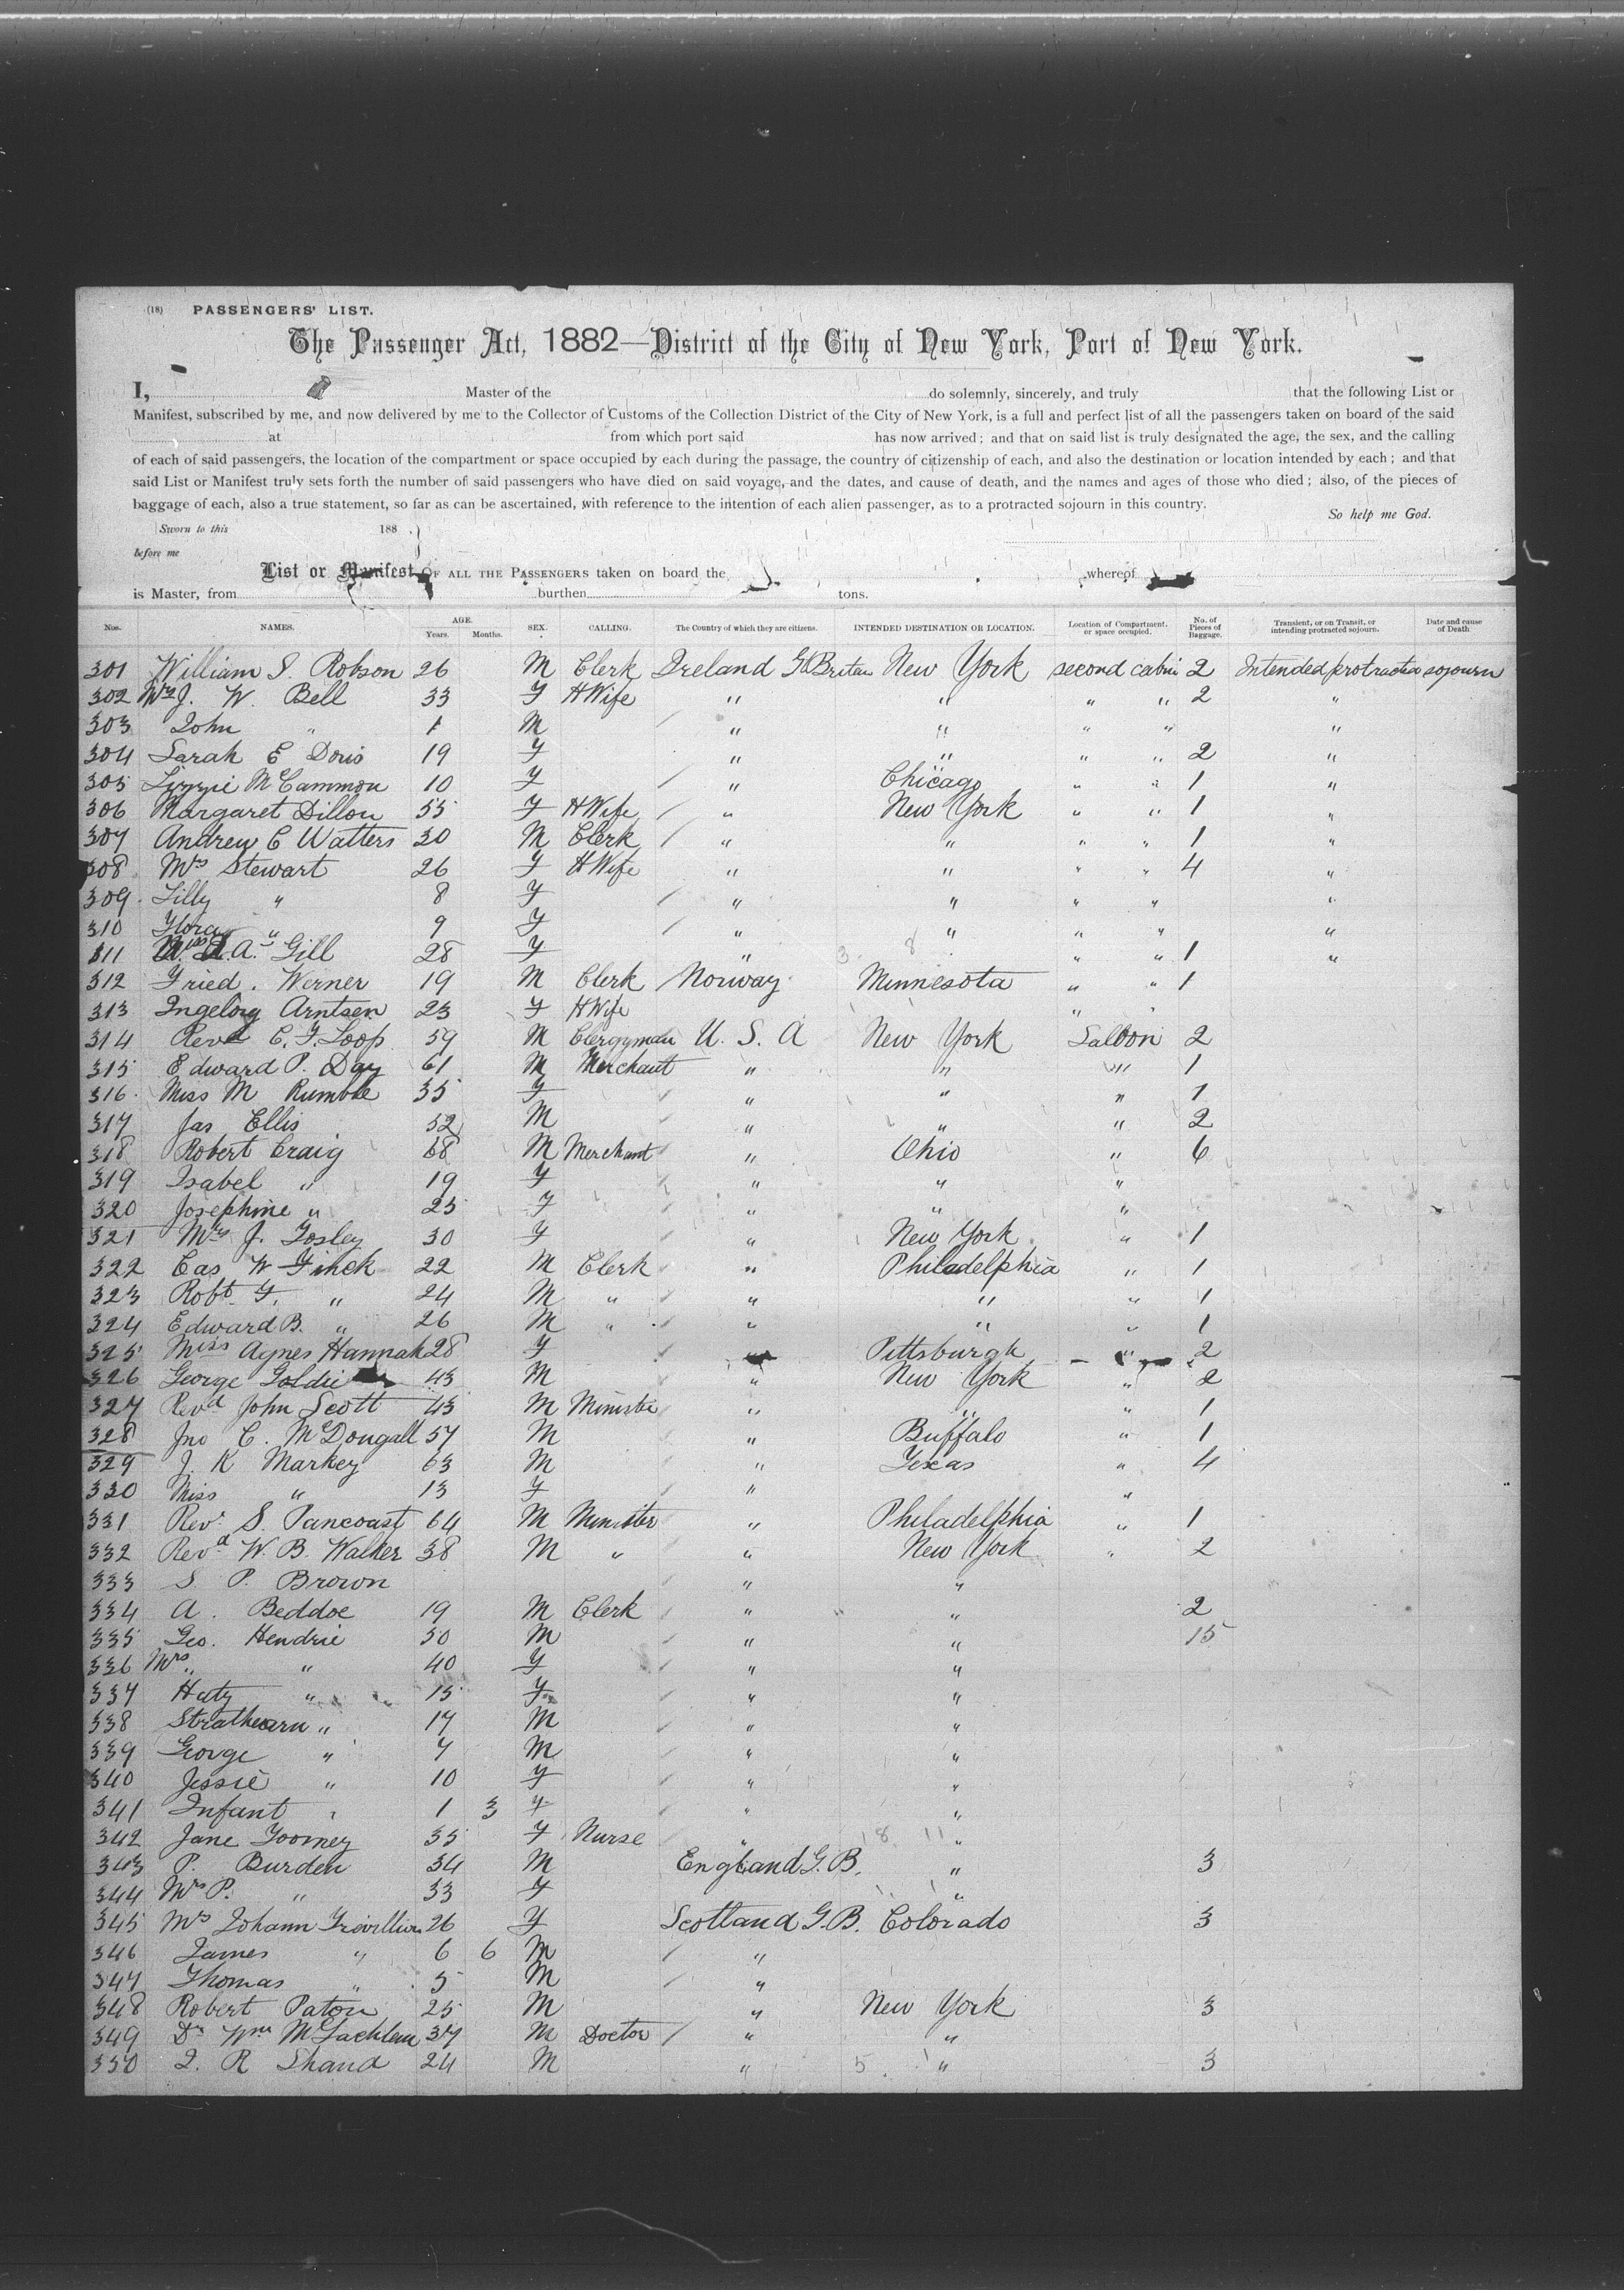 (18) PASSENGERS' LIST.
The Passenger Act, 1882—District of the City of New York, Port of New York.
I, Master of the do solemnly, sincerely, and truly that the following List or
Manifest, subscribed by me, and now delivered by me to the Collector of Customs of the Collection District of the City of New York, is a full and perfect list of all the passengers taken on board of the said
at from which port said has now arrived; and that on said list is truly designated the age, the sex, and the calling
of each of said passengers, the location of the compartment or space occupied by each during the passage, the country of citizenship of each, and also the destination or location intended by each; and that
said List or Manifest truly sets forth the number of said passengers who have died on said voyage, and the dates, and cause of death, and the names and ages of those who died; also, of the pieces of
baggage of each, also a true statement, so far as can be ascertained, with reference to the intention of each alien passenger, as to a protracted sojourn in this country.
So help me God.
Sworn to this 188
before me
List or Manifest OF ALL THE PASSENGERS taken on board the whereof
is Master, from burthen tons.
Nos. NAMES. AGE. Years. Months. SEX. CALLING. The Country of which they are citizens. INTENDED DESTINATION OR LOCATION. Location of Compartment. or space occupied. No. of Pieces of Baggage. Transient, or on Transit, or intending protracted sojourn. Date and cause of Death
301 William S. Robson 26 M Clerk Ireland Gt Briten New York second cabin 2 Intended protracted sojourn
302 Mrs J. W. Bell 33 F H Wife " " " " 2 "
303 John " 1 M " " " " "
304 Sarah E Doris 19 F " " " " 2 "
305 Lizzie McCammon 10 F " Chicago " " 1 "
306 Margaret Dillon 55 F H Wife " New York " " 1 "
307 Andrew C Watters 30 M Clerk " " " " 1 "
308 Mrs Stewart 26 F H Wife " " " " 4 "
309 Lilly " 8 F " " " " "
310 Flora " 9 F " " " " "
311 A. Gill 28 F " " " 1 "
312 Fried. Werner 19 M Clerk Norway Minnesota " " 1
313 Ingelorg Arntsen 23 F H Wife " "
314 Revd C. F. Loop 59 M Clergyman U. S. A New York Saloon 2
315 Edward P. Day 61 M Merchant " " " 1
316 Miss M Rumble 35 F " " " 1
317 Jas Ellis 52 M " " " 2
318 Robert Craig 68 M Merchant " Ohio " 6
319 Isabel " 19 F " " "
320 Josephine " 25 F " " "
321 Mrs J. Fosley 30 F " New York " 1
322 Cas W Finck 22 M Clerk " Philadelphia " 1
323 Robt F. " 24 M " " " " 1
324 Edward B. " 26 M " " " " 1
325 Miss Agnes Hannah 28 F " Pittsburgh " 2
326 George Goldie 43 M " New York " 2
327 Revd John Scott 43 M Ministe " " " 1
328 Jno C. McDougall 57 M " Buffalo " 1
329 J. K Markey 63 M " Texas " 4
330 Miss " 13 F " "
331 Rev. S. Pancoast 64 M Minister " Philadelphia " 1
332 Revd W. B. Walker 38 M " " New York " 2
333 S. P. Brown " "
334 A. Beddoe 19 M Clerk " " 2
335 Geo. Hendrie 50 M " " 15
336 Mrs " " 40 F " "
337 Haty " 15 F " "
338 Strathearn " 17 M " "
339 George " 7 M " "
340 Jessie " 10 F " "
341 Infant " 1 3 F " "
342 Jane Toomey 35 F Nurse " "
343 P. Burden 34 M England G. B. " 3
344 Mrs P. " 33 F "
345 Mrs Johann 26 F Scotland G. B. Colorado 3
346 James " 6 6 M "
347 Thomas " 5 M "
348 Robert Paton 25 M " New York 3
349 Dr Wm McLachlan 37 M Doctor " "
350 J. R Shand 24 M " " 3